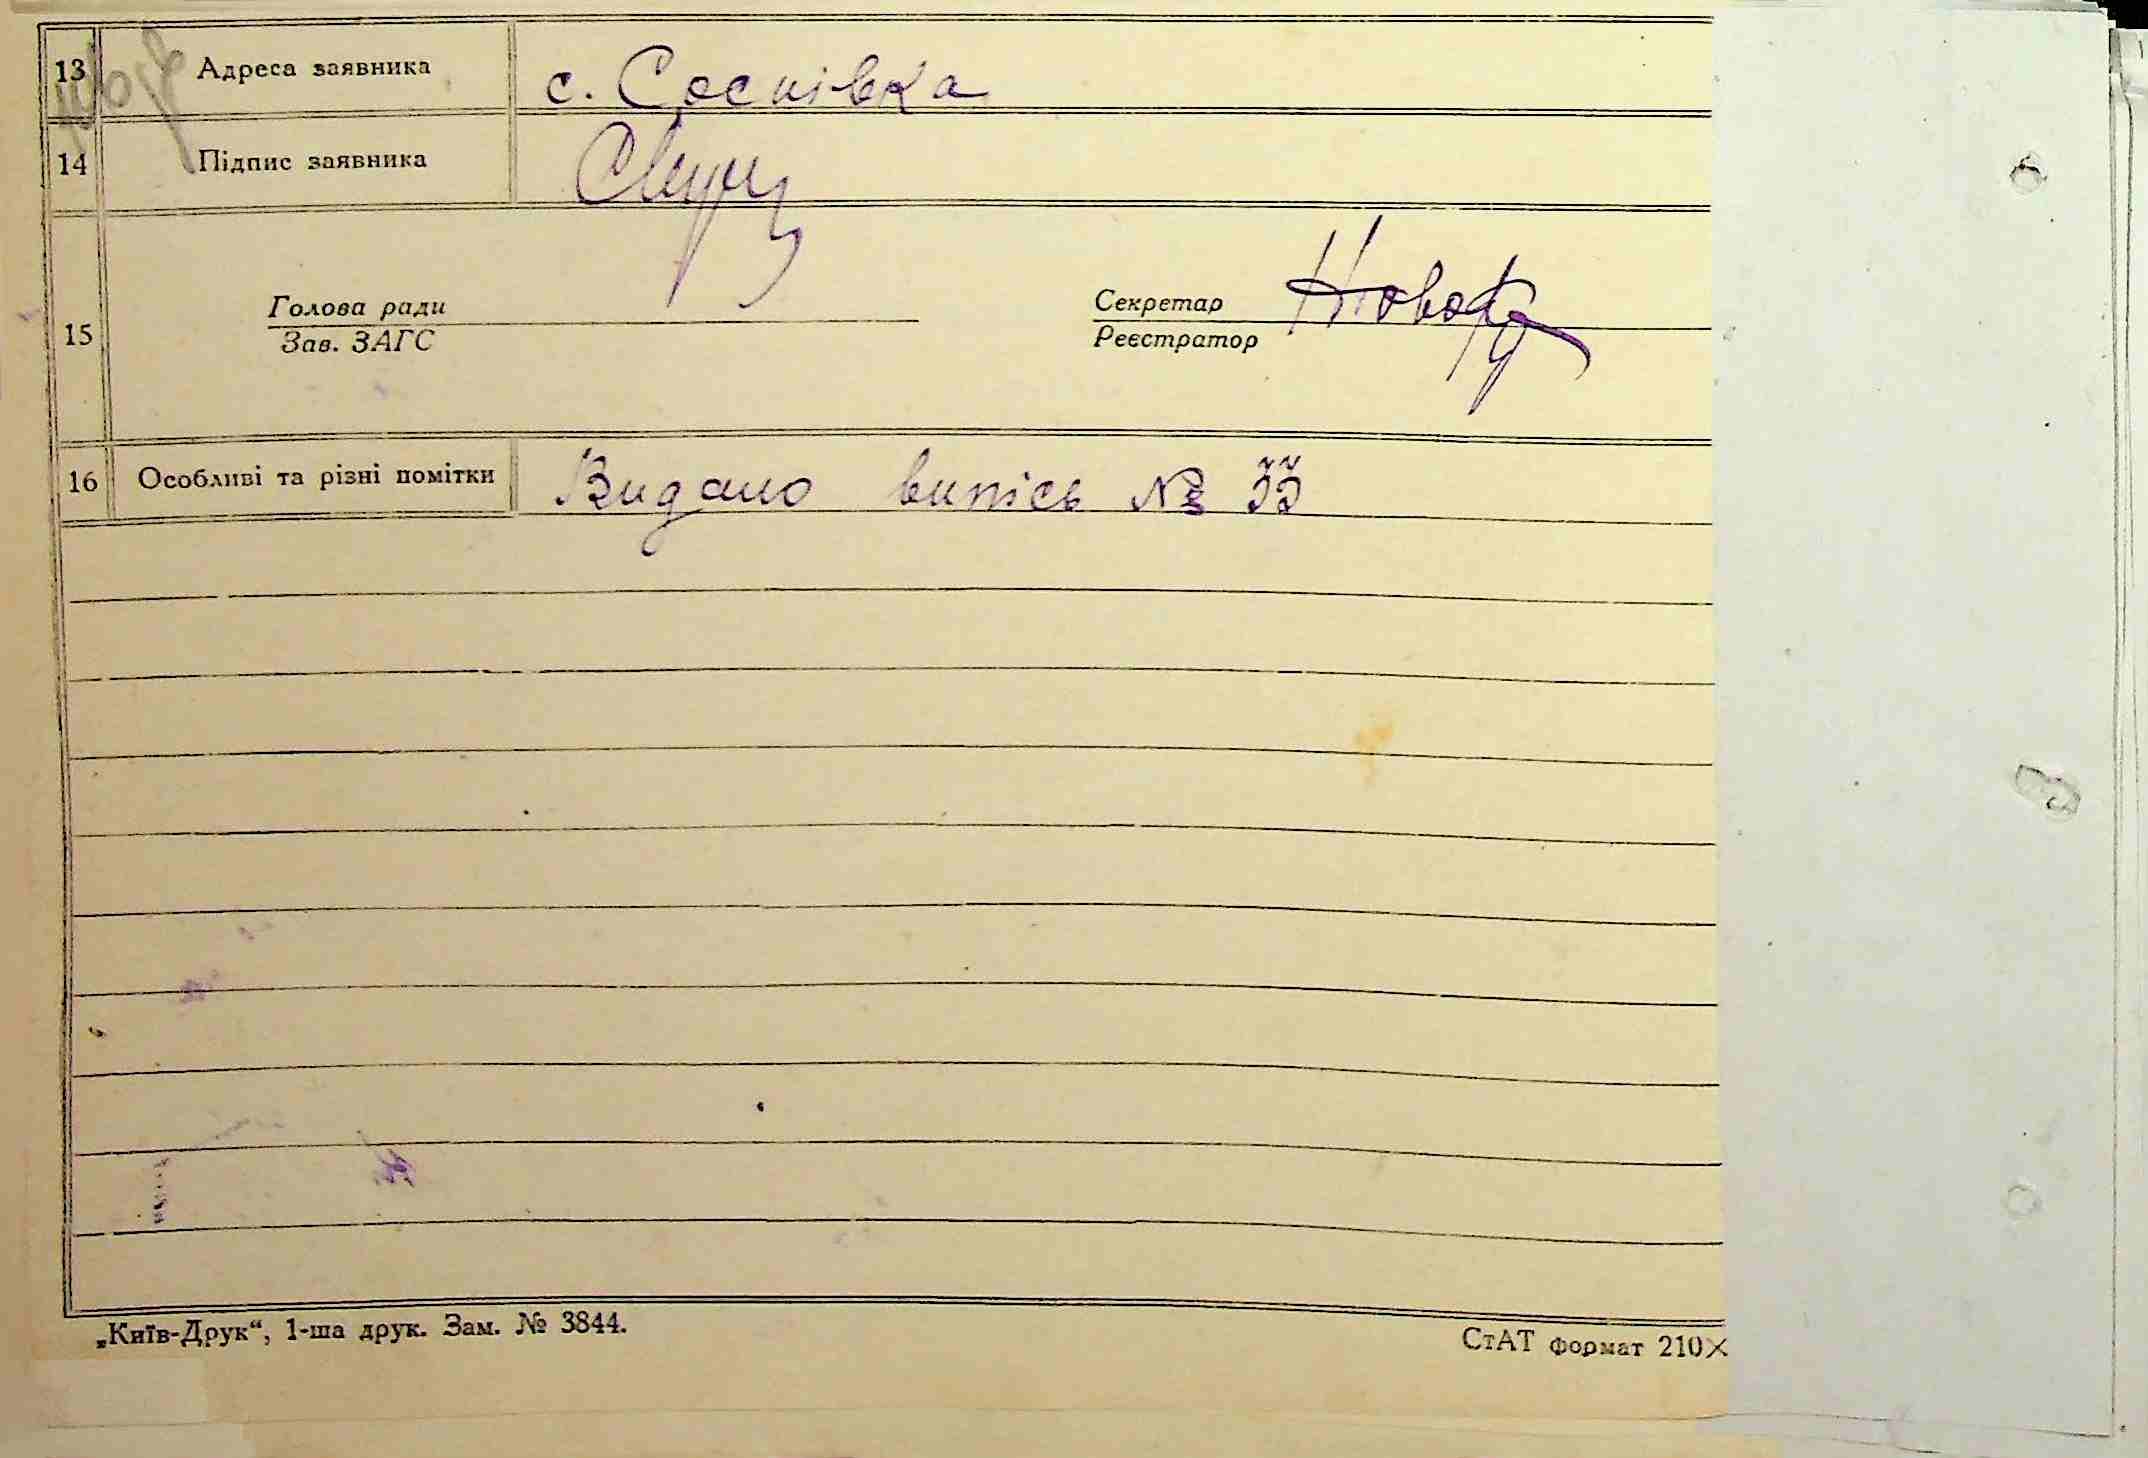 13 Адреса заявника с. Соснівка
14 Підпис заявника
Голова ради Секретар
15
Зав. ЗАГС Реєстратор
16 Особливі та різні помітки Видано випісь № 33
„Київ-Друк“, 1-ша друк. Зам. № 3844.
СтАТ формат 210×